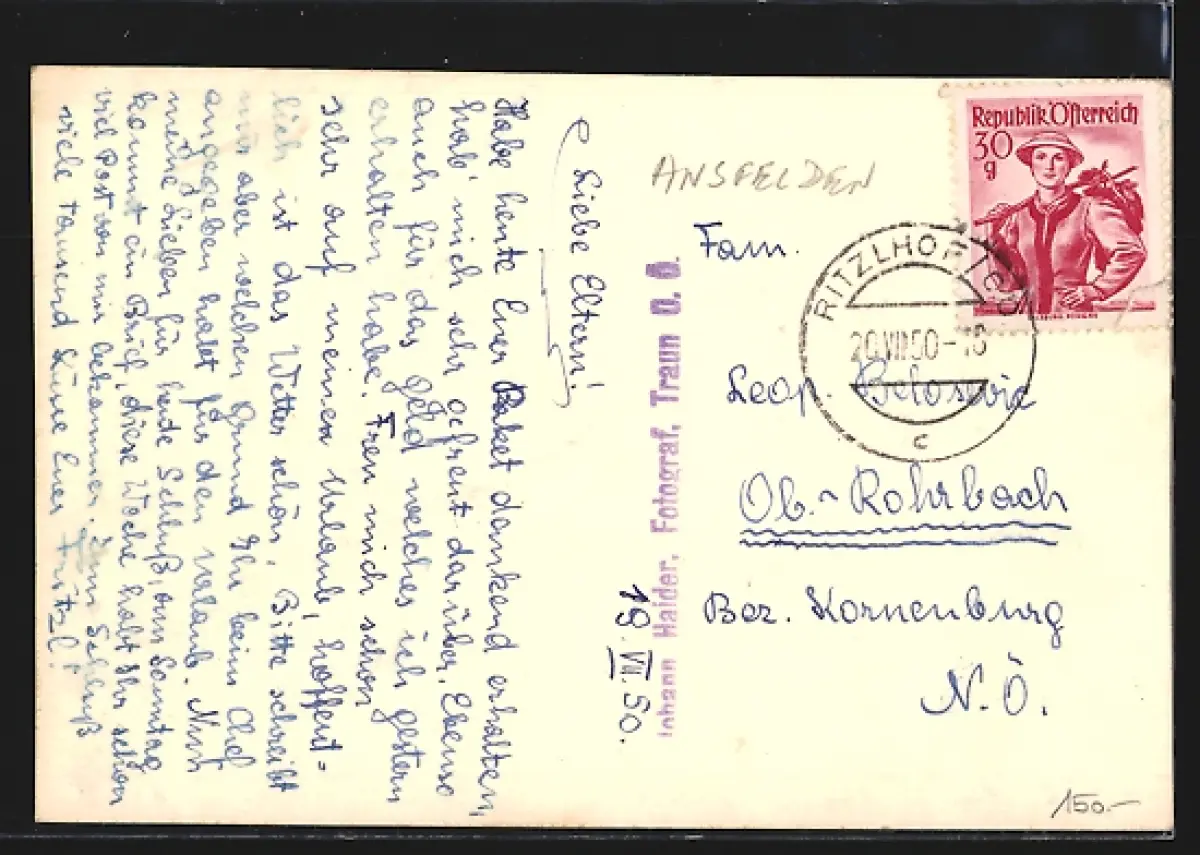 Liebe Eltern!
Habe heute Euer Paket dankend erhalten,
hab' mich sehr gefreut darüber. Ebenso
auch für das Geld welches ich gestern
erhalten habe. Freu mich schon
sehr auf meinen Urlaub, hoffent-
lich ist das Wetter schön. Bitte schreibt
mir aber welchen Grund Ihr beim Chef
angegeben habt für den Urlaub. Nun
meine Lieben für heute Schluß, am Sonntag
kommt ein Brief, diese Woche habt Ihr schon
viel Post von mir bekommen. Zum Schluß
viele tausend Küsse Euer Fritzl!
19.VII.50.
Johann Haider, Fotograf, Traun O. Ö.
ANSFELDEN
Republik Österreich
30
g
RITZLHOF
20.VII.50-18
c
Fam.
Leop. Belosevic
Ob.-Rohrbach
Bez. Kornenburg
N.Ö.
150.-